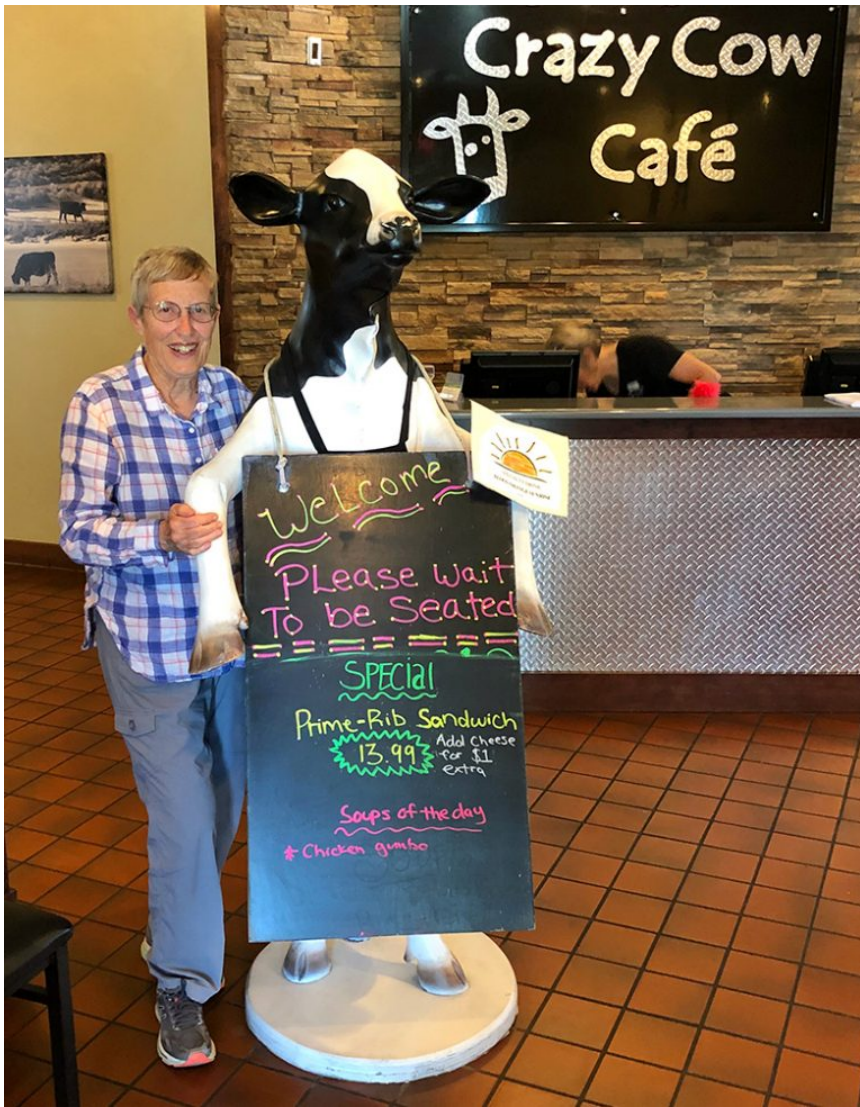 Crazy Cow
Café
WeLcome
PLease wait
To be Seated
SPECial
Prime-Rib Sandwich
13.99
Add Cheese
for $1
extra
Soups of the day
* Chicken gumbo